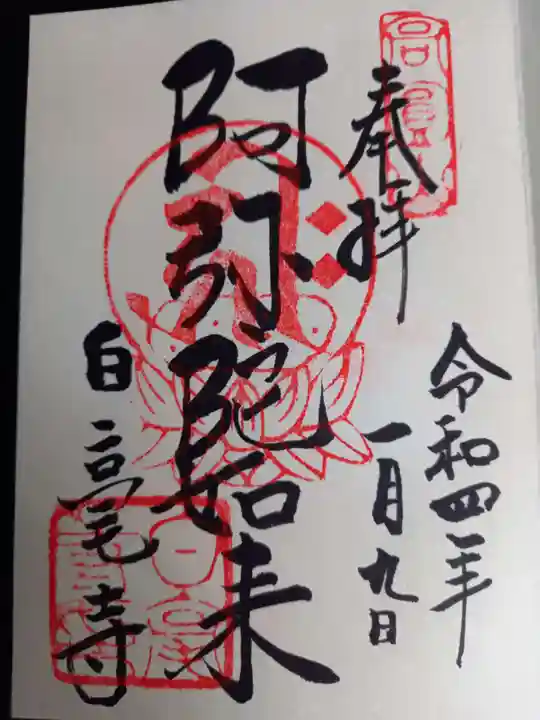 令和四年
一月九日
奉拝
阿弥陀如来
白毫寺